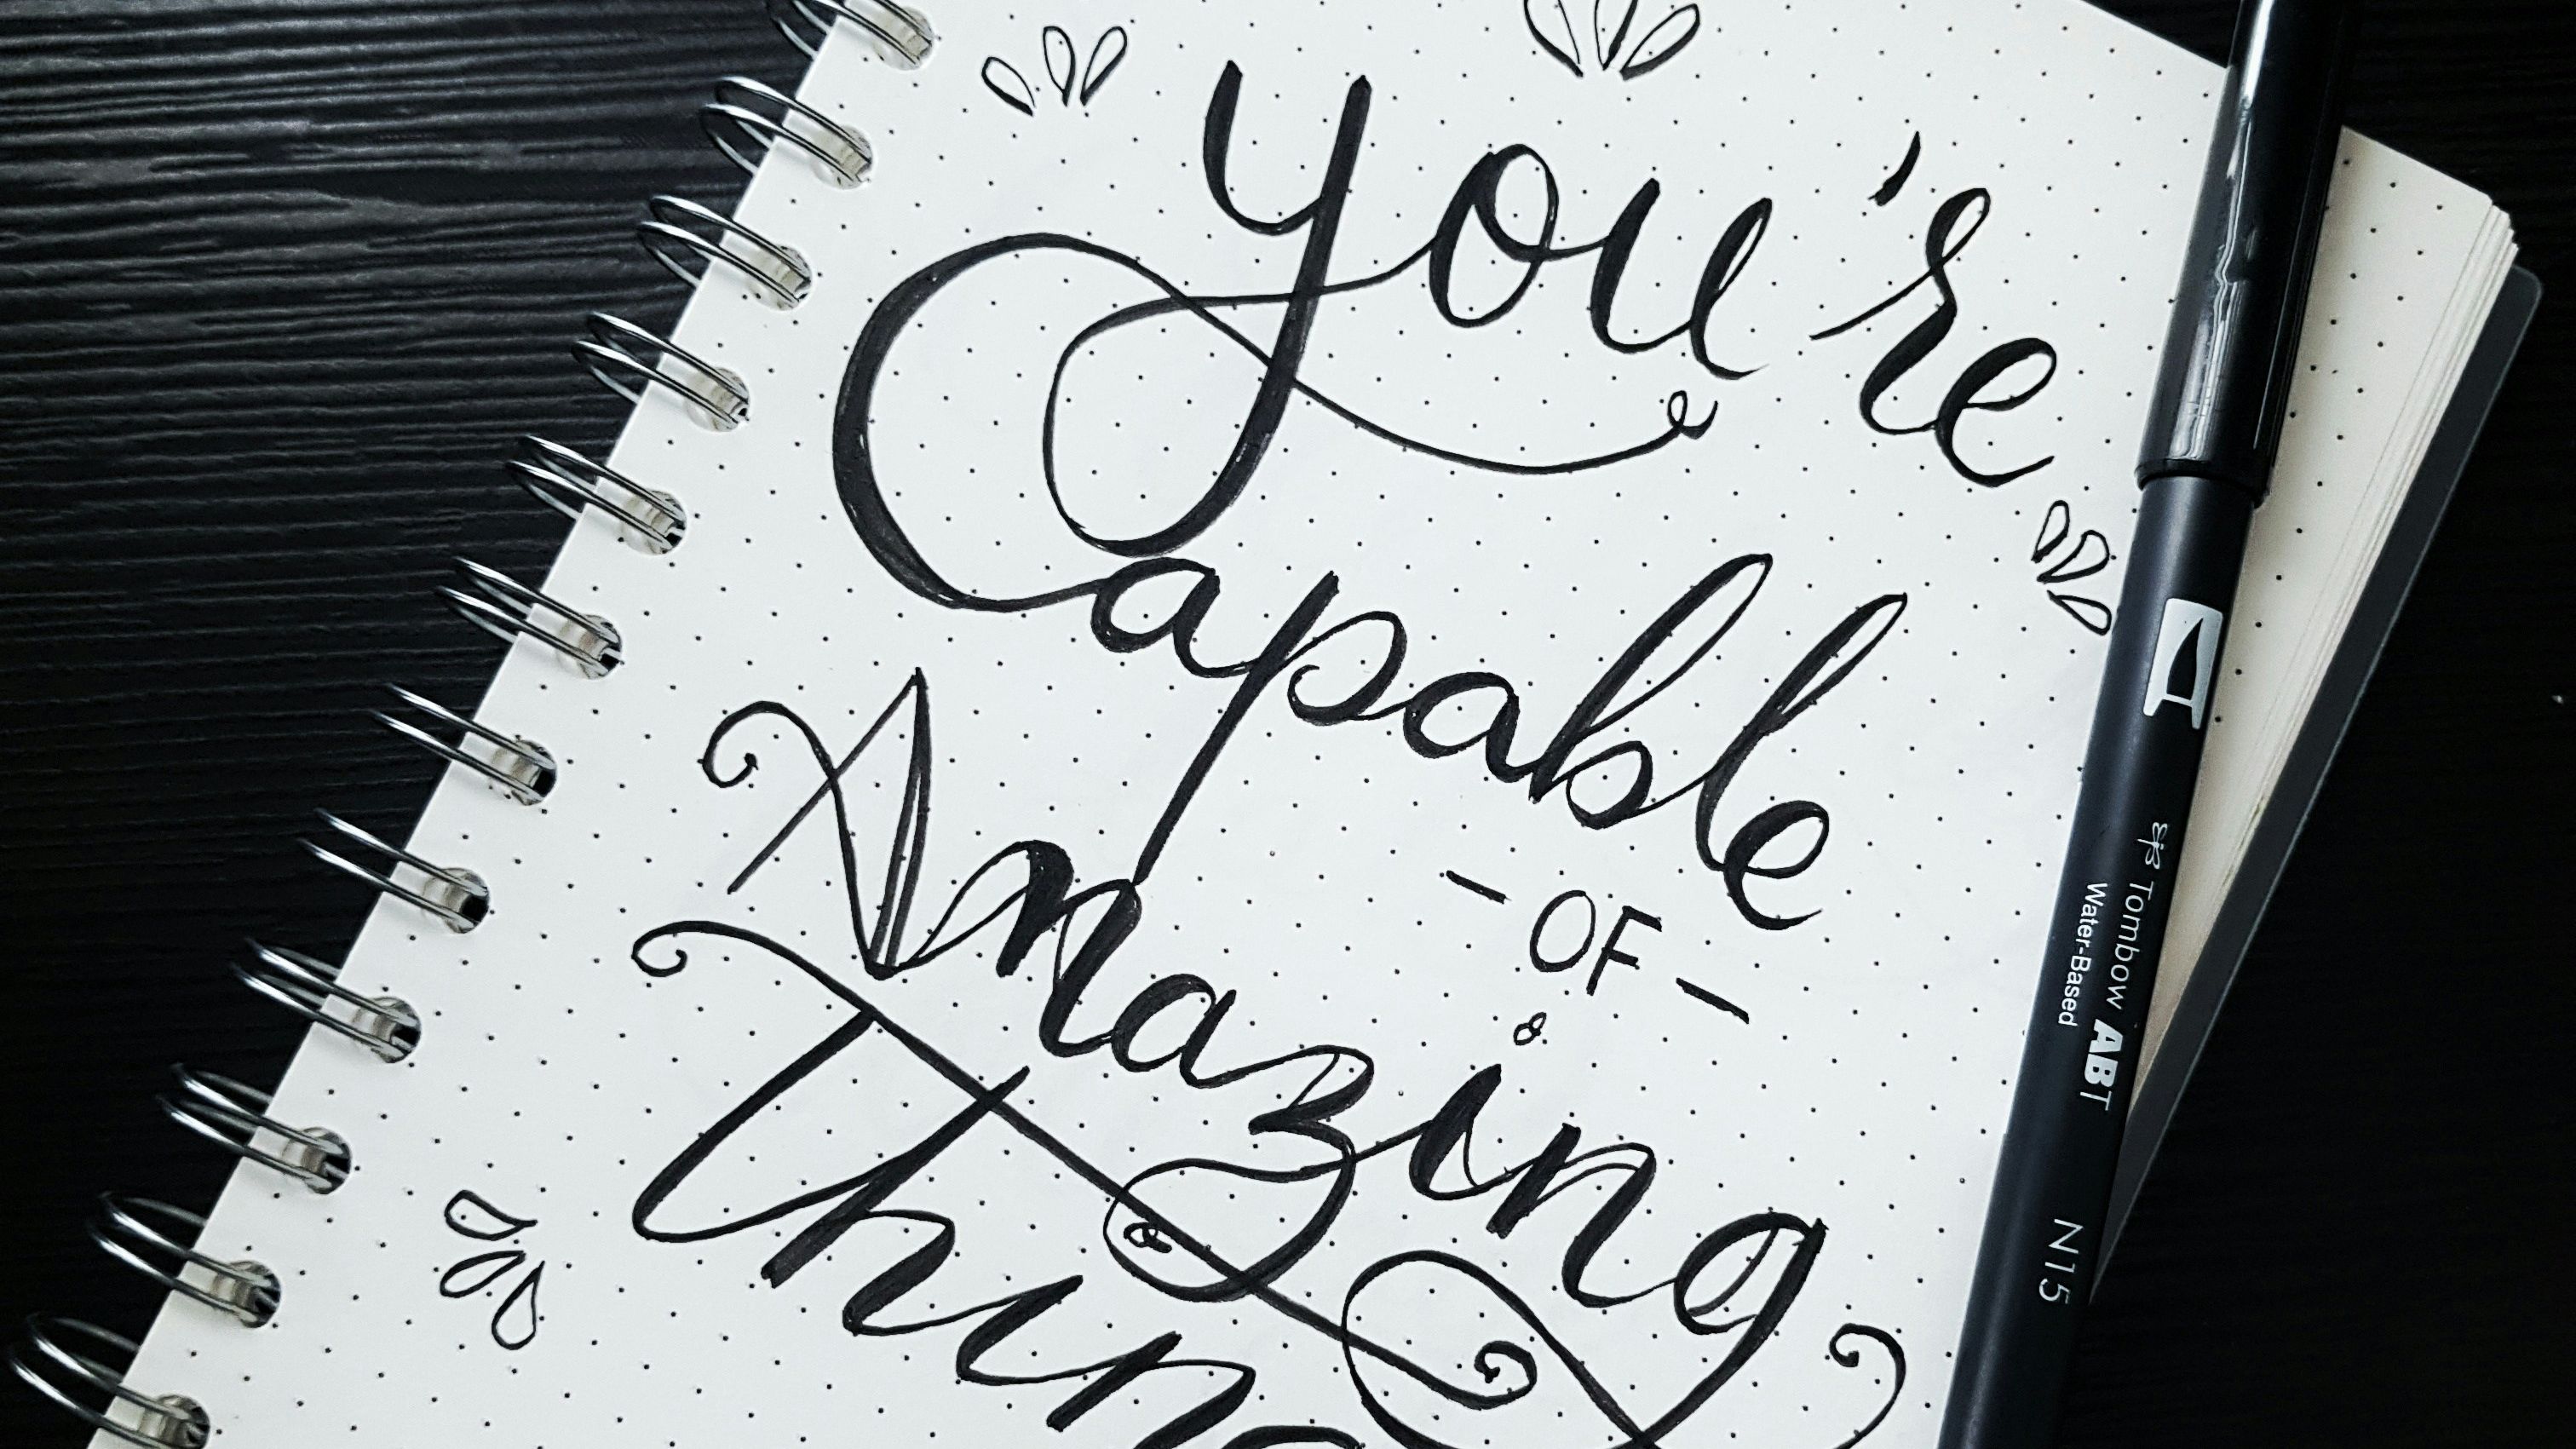 you're
Capable
- OF -
Amazing
thing
Tombow ABT
Water-Based
N15